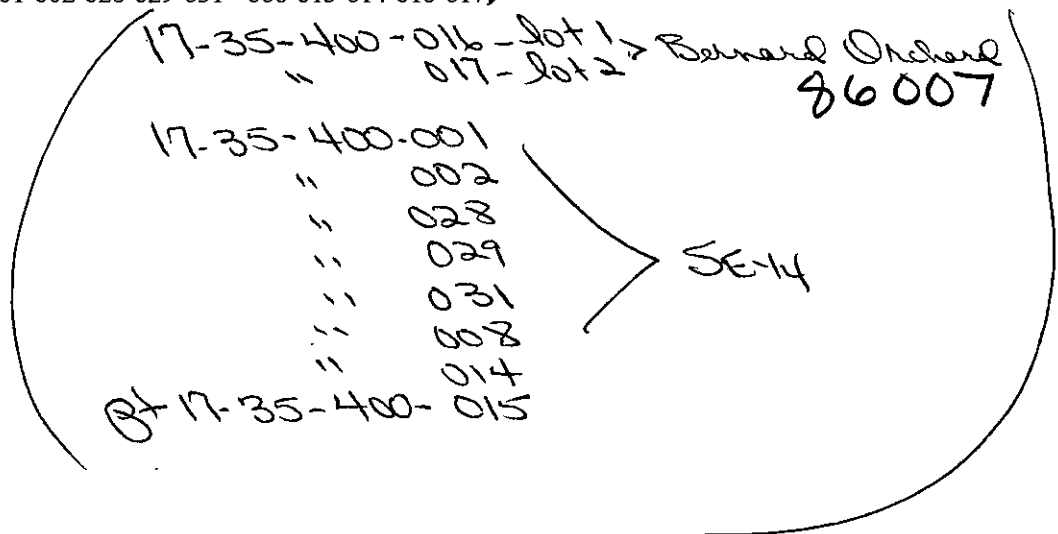 17-35-400-016-lot 1 > Bernard Orchard
" 017-lot 2 86007
17-35-400-001
" 002
" 028
" 029
" 031 SE-14
" 008
" 014
Pt 17-35-400-015